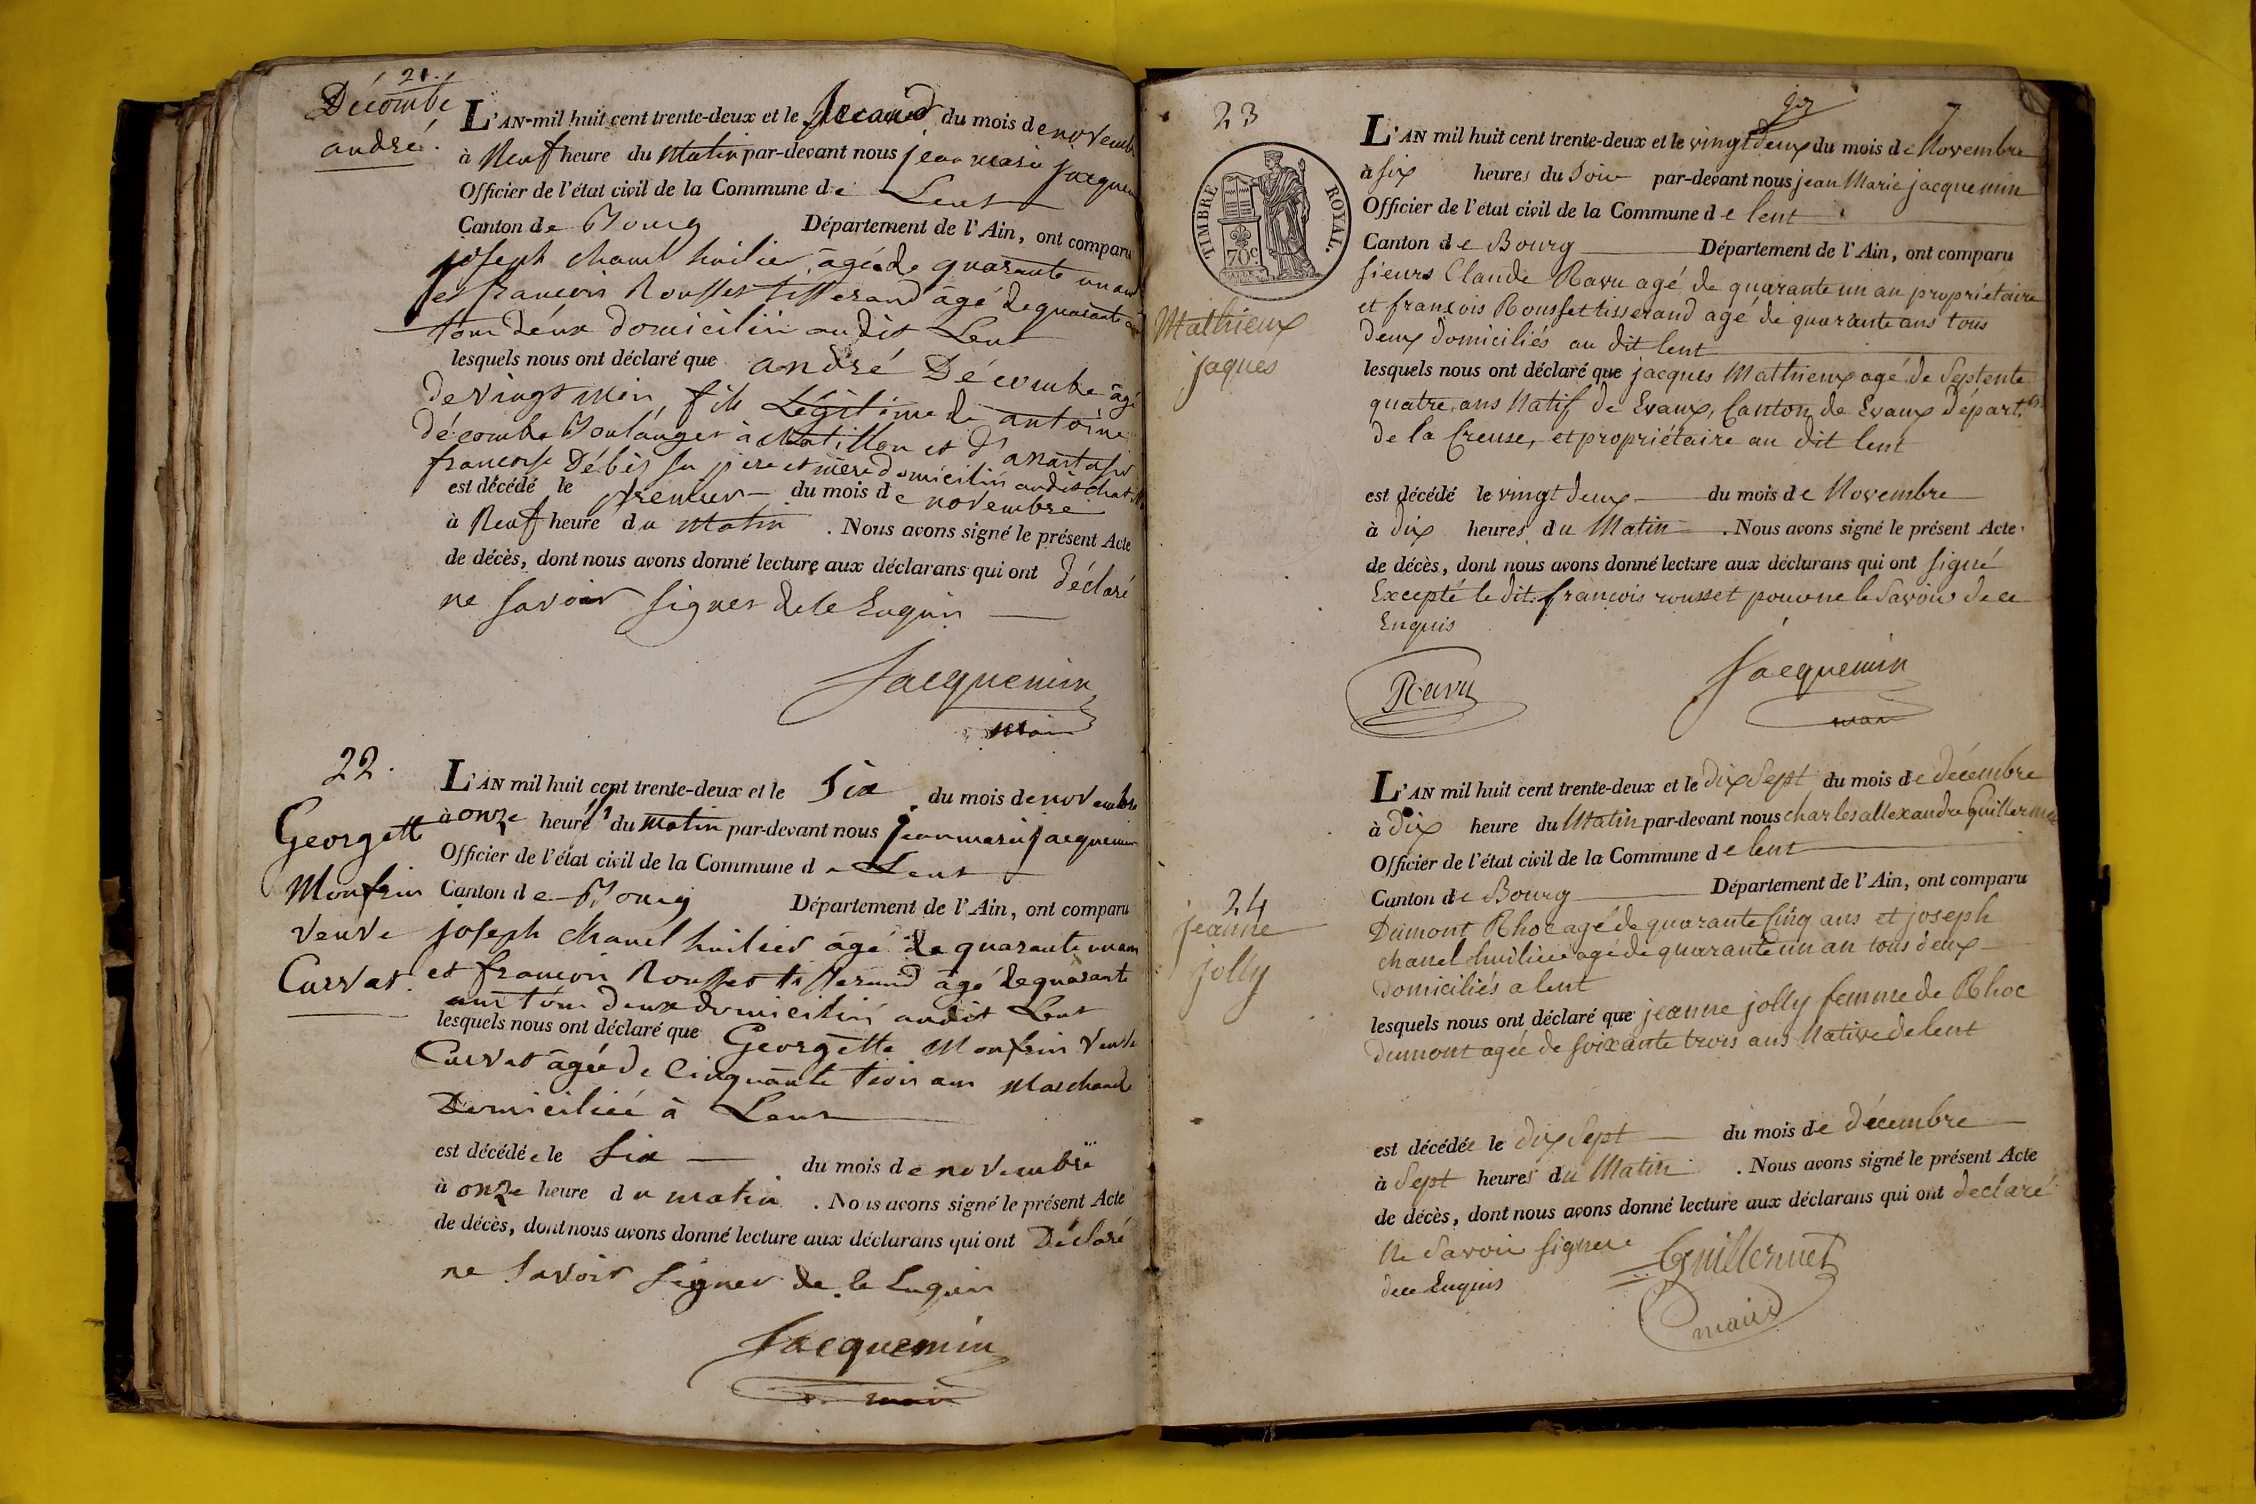 21.
Décombe
andré.
L'AN mil huit cent trente-deux et le second du mois de novemb
à Neuf heure du Matin par-devant nous jean marie jacquem
Officier de l'état civil de la Commune de Lent
Canton de Bourg Département de l'Ain, ont comparu
joseph chanel huilier, âgé de quarante un an
et francois Rousset tisserand âgé de quarante
tous deux domiciliés audit Lent
lesquels nous ont déclaré que andré Décombe âgé
de vingt mois, fils Légitime de antoine
décombe Boulanger à Chatillon et d'
francoise père et mère domiciliés audit
est décédé le premier du mois de novembre
à Neuf heure du Matin. Nous avons signé le présent Acte
de décès, dont nous avons donné lecture aux déclarans qui ont déclaré
ne savoir signer de le Enquis
Jacquemin
maire
22.
Georgette
Monfrin
veuve
Curvat.
L'AN mil huit cent trente-deux et le Six du mois de novembre
à onze heure du Matin par-devant nous jean marie jacquemin
Officier de l'état civil de la Commune de Lent
Canton de Bourg Département de l'Ain, ont comparu
joseph chanel huilier âgé de quarante un an
et francois Rousset tisserand âgé de quarante
ans tous deux domiciliés audit Lent
lesquels nous ont déclaré que Georgette Monfrin veuve
Curvat âgée de Cinquante trois ans Marchande
Domiciliée à Lent
est décédée le Six du mois de novembre
à onze heure du matin. Nous avons signé le présent Acte
de décès, dont nous avons donné lecture aux déclarans qui ont Déclaré
ne Savoir signer de le Enquis
Jacquemin
maire
23
TIMBRE ROYAL.
70c.
Mathieux
jaques
7
L'AN mil huit cent trente-deux et le vingt deux du mois de Novembre
à six heures du Soir par-devant nous jean Marie jacquemin
Officier de l'état civil de la Commune de lent
Canton de Bourg Département de l'Ain, ont comparu
sieurs Claude Ravu agé de quarante un an propriétaire
et françois Rousset tisserand agé de quarante ans tous
deux domiciliés au dit lent
lesquels nous ont déclaré que jacques Mathieux agé de Septente
quatre ans Natif de Evaux, Canton de Evaux départ.
de la Creuse, et propriétaire au dit lent
est décédé le vingt deux du mois de Novembre
à dix heures du Matin. Nous avons signé le présent Acte
de décès, dont nous avons donné lecture aux déclarans qui ont signé
Excepté le dit françois rousset pour ne le Savoir de ce
Enquis
Ravu
Jacquemin
maire
24
jeanne
jolly
L'AN mil huit cent trente-deux et le dix Sept du mois de décembre
à dix heure du Matin par-devant nous charles allexandre Guillermet
Officier de l'état civil de la Commune de lent
Canton de Bourg Département de l'Ain, ont comparu
Dumont Rhoc agé de quarante Cinq ans et joseph
chanel huillier agé de quarante un an tous deux
domiciliés a lent
lesquels nous ont déclaré que jeanne jolly femme de Rhoc
dumont agée de soixante trois ans Native de lent
est décédée le dix Sept du mois de décembre
à Sept heures du Matin. Nous avons signé le présent Acte
de décès, dont nous avons donné lecture aux déclarans qui ont declaré
Ne Savoir signer
de ce Enquis
Guillermet
maire